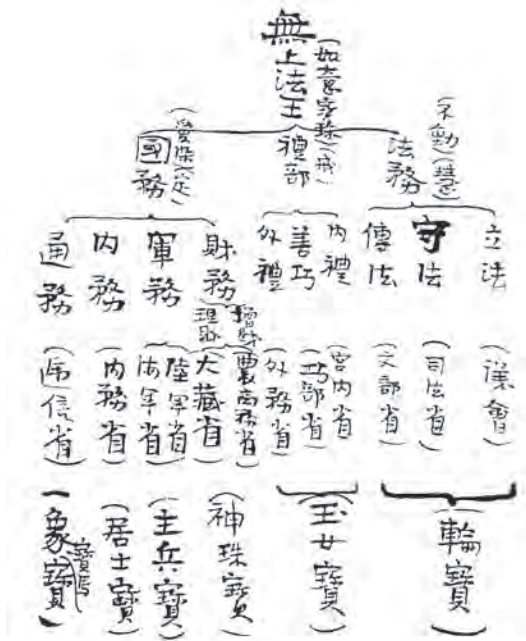 無上法王
(如意寶珠)(戒)
禮部
(不動)(慧)
法務
(愛染)(定)
國務
立法
守法
傳法
内禮
善巧
外禮
財務
軍務
内務
通務
理財
(議會)
(司法省)
(文部省)
宮内省)
巧部省)
外務省)
農商務省)
大藏省)
陸軍省)
海軍省)
(内務省)
(逓信省)
(輪寶)
(玉女寶)
(神珠寶)
(主兵寶)
(居士寶)
(象寶
寶馬